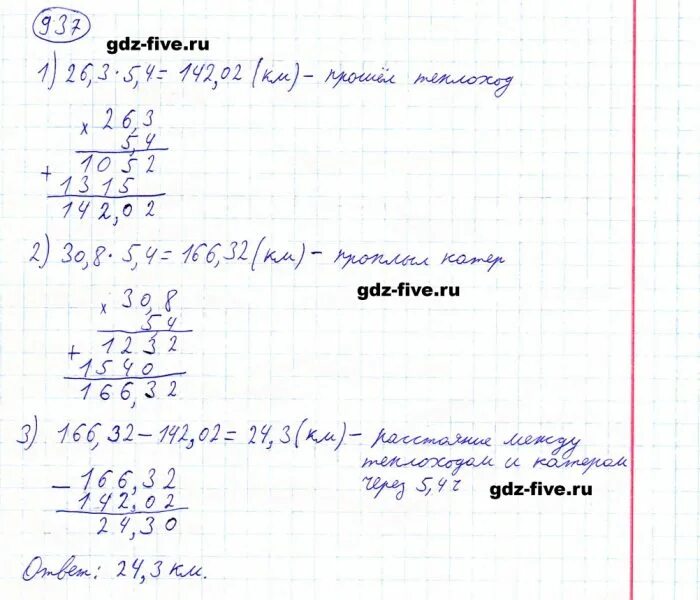 937
gdz-five.ru
1) 26,3 · 5,4 = 142,02 (км) – прошёл теплоход
× 26,3
5,4
+ 1052
1315
142,02
2) 30,8 · 5,4 = 166,32 (км) – проплыл катер
gdz-five.ru
× 30,8
5,4
+ 1232
1540
166,32
3) 166,32 – 142,02 = 24,3 (км) – расстояние между
теплоходом и катером
через 5,4 ч
gdz-five.ru
– 166,32
142,02
24,30
Ответ: 24,3 км.